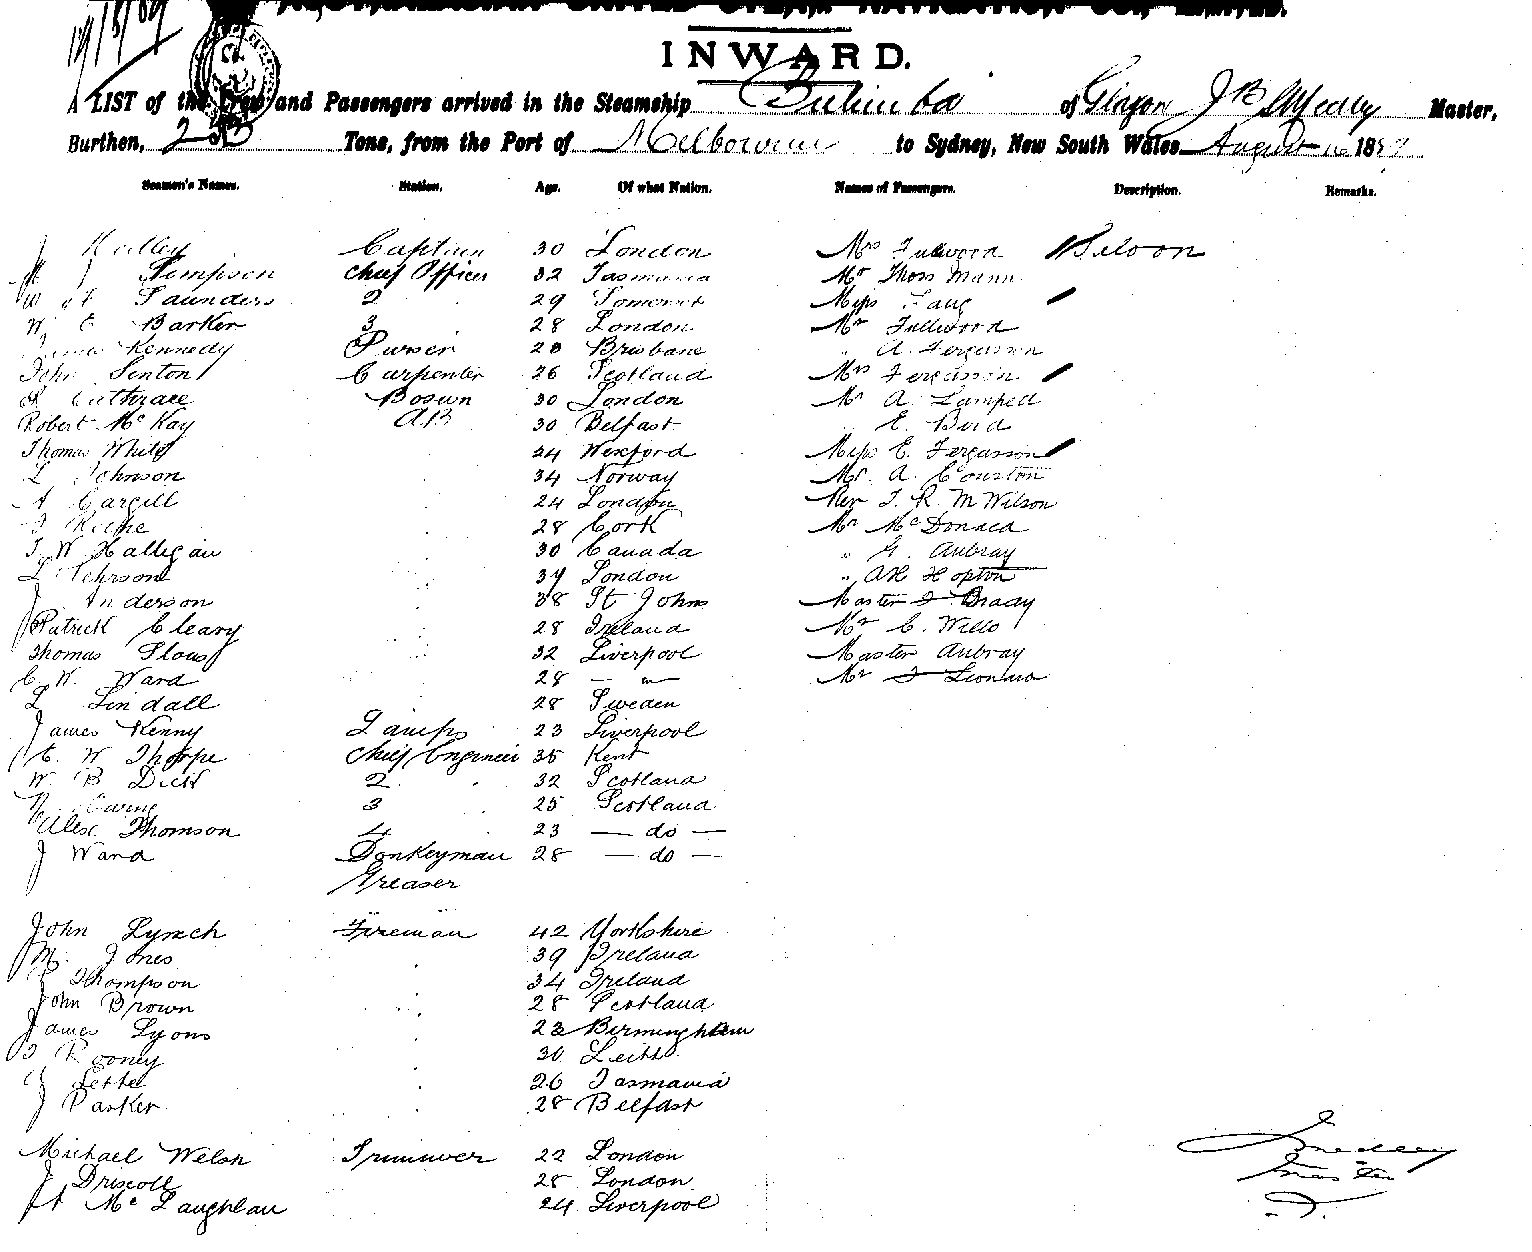 AUSTRALASIAN UNITED STEAM NAVIGATION CO., LIMITED.
INWARD.
A LIST of the Crew and Passengers arrived in the Steamship Bulimba of Glasgow J B Smedley Master,
Burthen, Tons, from the Port of Melbourne to Sydney, New South Wales August 16 188
Seamen's Names. Station. Age. Of what Nation. Names of Passengers. Description. Remarks.
Captain 30 London Mrs Fullwood Saloon
J Simpson Chief Officer 32 Tasmania Mr Thos Mann
Saunders 2 29 Somerset Miss
W E Barker 3 28 London Mr Fullwood
Kennedy Purser 28 Brisbane " A. Fergusson
John Linton Carpenter 26 Scotland Mrs Fergusson
Bosun 30 London Mr A. Lampell
Robert McKay AB 30 Belfast " E. Bird
Thomas White 24 Wexford Miss E. Fergusson
L Johnson 34 Norway Mr. A. Couston
A Cargill 24 London Rev J. R. M Wilson
28 Cork Mr McDonald
J W Halligan 30 Canada " G. Aubray
L 34 London " AH Hopton
J Anderson 38 St Johns Master Brady
Patrick Cleary 28 Ireland Mr C. Wills
Thomas 32 Liverpool Master Aubray
C. W. Ward 28 — " — Mr
L Lindall 28 Sweden
James Kenny Lamps 23 Liverpool
C. W Thorpe Chief Engineer 35 Kent
W B Dick 2 32 Scotland
3 25 Scotland
Alex Thomson 4 23 — do —
J Ward Donkeyman 28 — do —
Greaser
John Lynch Fireman 42 Yorkshire
M. Jones 39 Ireland
J Thompson 34 Ireland
John Brown 28 Scotland
James Lyons 22 Birmingham
Rooney 30 Leith
J 26 Tasmania
J Parker 28 Belfast
Michael Welsh Trimmer 22 London
J Driscoll 28 London
McLaughlan 24 Liverpool
Smedley
Master